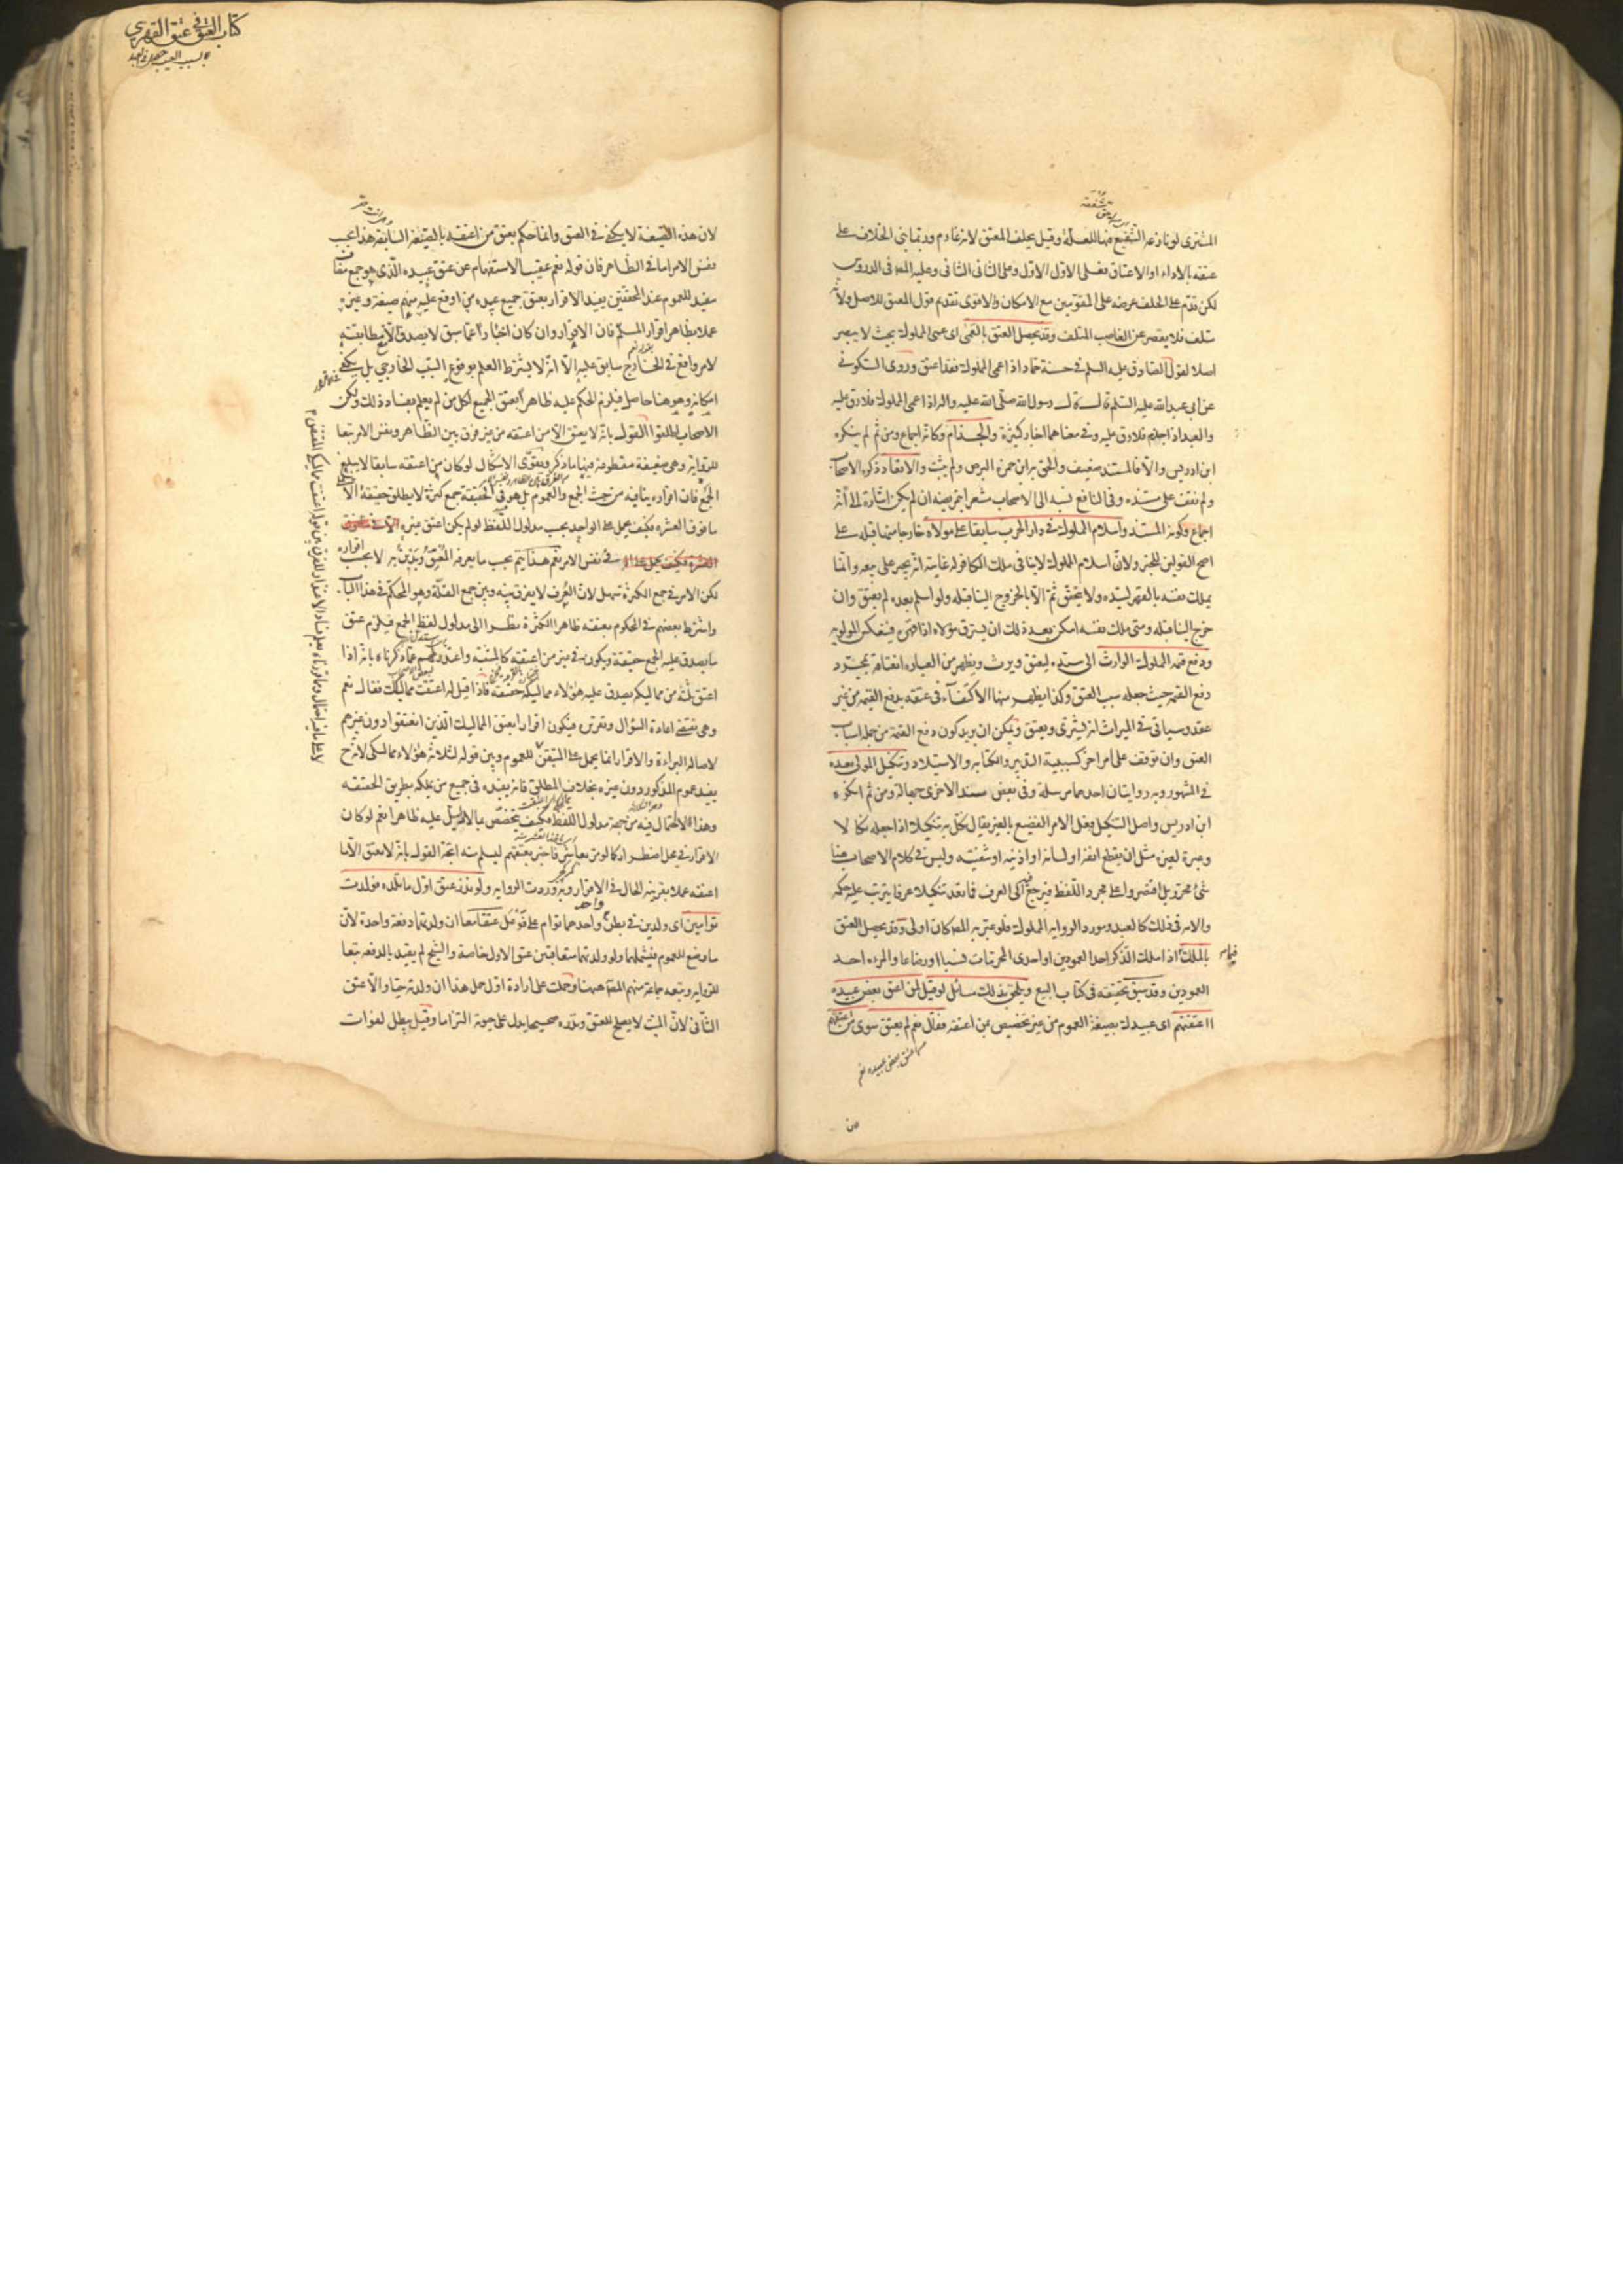 المشترى لو نازعه الشفيع فيها للعلة وقيل يحلف المعتق لانه غارم وربما بنى الخلاف على
عتقه بالاداء او الاعتاق فعلى الاول الاول وعلى الثانى الثانى وعليه المص فى الدروس
لكن قدم على الحلف عرضه على المقومين مع الامكان والاقوى تقديم قول المعتق للاصل ولانه
متلف فلا يقصر عن الغاصب المتلف وقد يحصل العتق بالعمى اى عمى المملوك بحيث لا يبصر
اصلا لقول الصادق عليه السلم فى حسنة حماد اذا عمى المملوك فقد اعتق وروى السكونى
عن ابى عبد الله عليه السلم قال قال رسول الله صلى الله عليه واله اذا عمى المملوك فلا رق عليه
والعبد اذا جذم فلا رق عليه وفى معناهما اخبار كثيرة والجذام وكانه اجماع ومن ثم لم ينكره
ابن ادريس والا فالمستند ضعيف والحق به ابن حمزة البرص ولم يثبت والاقعاد ذكره الاصحاب
ولم نقف على مستنده وفى النافع نسبه الى الاصحاب مشعرا بتمريضه ان لم يكن اشارة الى انه
اجماع وكونه المستند واسلام المملوك فى دار الحرب سابقا على مولاه خارجا منها قبله على
اصح القولين للخبر ولان اسلام المملوك لا ينافى ملك الكافر له غايته انه يجبر على بيعه وانما
يملك نفسه بالقهر لسيده ولا يتحقق ثم الا بالخروج الينا قبله ولو اسلم بعده لم يعتق وان
خرج الينا قبله ومتى ملك نفسه امكن بعد ذلك ان يسترق مولاه اذا قهره فينعكس المولوية
ودفع قيمة المملوك الوارث الى سيده ليعتق ويرث ويظهر من العبارة انعتاقه بمجرد
دفع القيمة حيث جعله سبب العتق وكذا يظهر منها الاكتفاء فى عتقه بدفع القيمة من غير
عقد وسياتى فى الميراث انه يشترى ويعتق ويمكن ان يريد كون دفع القيمة من جملة اسباب
العتق وان توقف على امر اخر كسببية التدبير والكتابة والاستيلاد وتنكيل المولى بعبده
فى المشهور وبه روايتان احدهما مرسلة وفى بعض سند الاخرى جهالة ومن ثم انكره
ابن ادريس واصل التنكيل فعل الامر الفضيع بالغير يقال نكل به تنكيلا اذا جعله نكالا
وعبرة لغيره مثل ان يقطع انفه او لسانه او اذنيه او شفتيه وليس فى كلام الاصحاب هنا
شئ محرر بل اقتصروا على مجرد اللفظ فيرجع فيه الى العرف فما يعد تنكيلا عرفا يترتب عليه حكمه
والامة فى ذلك كالعبد ومورد الرواية المملوك فلو عبر به المص كان اولى وقد يحصل العتق
بالملك فيما اذا ملك الذكر احد العمودين او احدى المحرمات نسبا او رضاعا والمرءة احد
العمودين وقد سبق تحقيقه فى كتاب البيع ويلحق بذلك مسائل لو قيل لمن اعتق بعض عبيده
ااعتقتهم اى عبيدك بصيغة العموم من غير تخصيص بمن اعتقه فقال نعم لم يعتق سوى من اعتقهم
كتاب العتق فى عتق القهرى
لان هذه الصيغة لا يكفى فى العتق وانما حكم بعتق من اعتقه بالصيغة السابقة هذا بحسب
نفس الامر اما فى الظاهر فان قوله نعم عقيب الاستفهام عن عتق عبيده الذى هو جمع مضاف
مفيد للعموم عند المحققين يفيد الاقرار بعتق جميع عبيده من اوقع عليه منهم صيغة وغيره
عملا بظاهر اقرار المسلم فان الاقرار وان كان اخبارا عما سبق لا يصدق الا مع مطابقته
لامر واقع فى الخارج سابق عليه الا انه لا يشترط العلم بوقوع السبب الخارجى بل يكفى
امكانه وهو هنا حاصل فيلزم الحكم عليه ظاهرا بعتق الجميع لكل من لم يعلم بفساد ذلك ولكن
الاصحاب اطلقوا القول بانه لا يعتق الا من اعتقه من غير فرق بين الظاهر ونفس الامر تبعا
للرواية وهى ضعيفة مقطوعة فيها ما ذكر ويقوى الاشكال لو كان من اعتقه سابقا لا يبلغ
الجمع فان افراده ينافيه من حيث الجمع والعموم بل هو فى الحقيقة جمع كثرة لا يطلق حقيقة الا على
ما فوق العشرة فكيف يحمل على الواحد بحسب مدلول اللفظ لو لم يكن اعتق غيره
فى نفس الامر نعم هذا يتم بحسب ما يعرفه المعتق ويدين به لا بحسب اقراره
لكن الامر فى جمع الكثرة سهل لان العرف لا يفرق بينه وبين جمع القلة وهو المحكم فى هذا الباب
واشترط بعضهم فى المحكوم بعتقه ظاهرا الكثرة نظرا الى مدلول لفظ الجمع فيلزم عتق
ما يصدق عليه الجمع حقيقة ويكون فى غير من اعتقه كالمشتبه واعتذر بعضهم عما ذكرناه بانه اذا
اعتق ثلثة من مماليكه يصدق عليه هؤلاء مماليكه حقيقة فاذا قيل له اعتقت مماليكك فقال نعم
وهى تقتضى اعادة السؤال وتقريره فيكون اقرارا بعتق المماليك الذين انعتقوا دون غيرهم
لاصالة البراءة والاقرار انما يحمل على المتيقن للعموم وبين قوله لثلاثة هؤلاء مماليكى لانه ح
يفيد عموم المذكور دون غيره بخلاف المطلق فانه يفيده فى جميع من يملكه بطريق الحقيقة
وهذا الاحتمال فيه من جهة مدلول اللفظ فكيف يتخصص بما لا دليل عليه ظاهرا نعم لو كان
الاقرار فى محل اضطرار كما لو مر بعاشر فاخبر بعتقهم ليسلم منه اتجه القول بانه لا يعتق الا ما
اعتقه عملا بقرينة الحال فى الاقرار وبه وردت الرواية ولو نذر عتق اول ما تلده فولدت
توامين اى ولدين فى بطن واحد واحدهما توام على فوعل عتقا معا ان ولدتهما دفعة واحدة لان
ما وضع للعموم فيشملهما ولو ولدتهما متعاقبين عتق الاول خاصة والشيخ لم يقيد بالدفعة تبعا
للرواية وتبعه جماعة منهم المص هنا وحملت على ارادة اول حمل هذا ان ولدته حيا والا عتق
الثانى لان الميت لا يصلح للعتق ونذره صحيحا يدل على حيوته التزاما وقيل يبطل لفوات